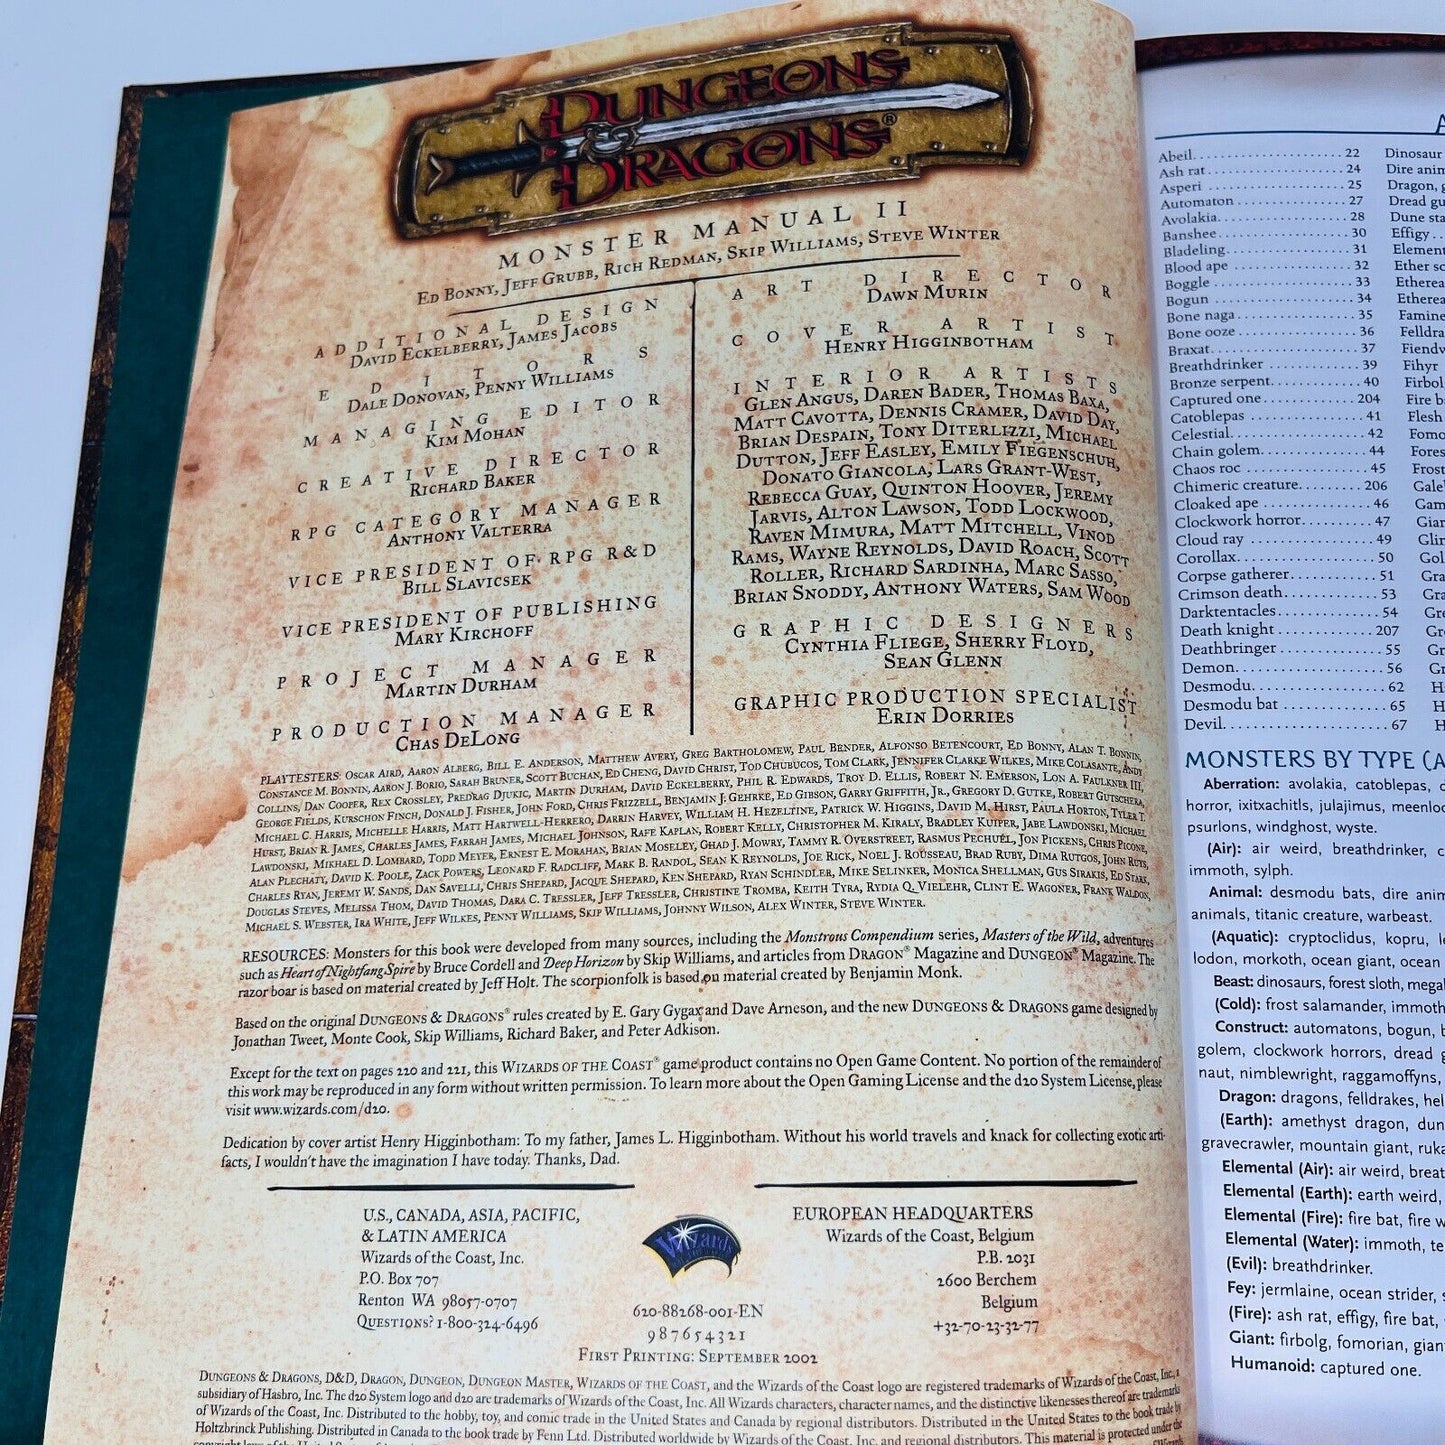 DUNGEONS
DRAGONS®
MONSTER MANUAL II
ED BONNY, JEFF GRUBB, RICH REDMAN, SKIP WILLIAMS, STEVE WINTER
ADDITIONAL DESIGN
DAVID ECKELBERRY, JAMES JACOBS
EDITORS
DALE DONOVAN, PENNY WILLIAMS
MANAGING EDITOR
KIM MOHAN
CREATIVE DIRECTOR
RICHARD BAKER
RPG CATEGORY MANAGER
ANTHONY VALTERRA
VICE PRESIDENT OF RPG R&D
BILL SLAVICSEK
VICE PRESIDENT OF PUBLISHING
MARY KIRCHOFF
PROJECT MANAGER
MARTIN DURHAM
PRODUCTION MANAGER
CHAS DELONG
ART DIRECTOR
DAWN MURIN
COVER ARTIST
HENRY HIGGINBOTHAM
INTERIOR ARTISTS
GLEN ANGUS, DAREN BADER, THOMAS BAXA,
MATT CAVOTTA, DENNIS CRAMER, DAVID DAY,
BRIAN DESPAIN, TONY DITERLIZZI, MICHAEL
DUTTON, JEFF EASLEY, EMILY FIEGENSCHUH,
DONATO GIANCOLA, LARS GRANT-WEST,
REBECCA GUAY, QUINTON HOOVER, JEREMY
JARVIS, ALTON LAWSON, TODD LOCKWOOD,
RAVEN MIMURA, MATT MITCHELL, VINOD
RAMS, WAYNE REYNOLDS, DAVID ROACH, SCOTT
ROLLER, RICHARD SARDINHA, MARC SASSO,
BRIAN SNODDY, ANTHONY WATERS, SAM WOOD
GRAPHIC DESIGNERS
CYNTHIA FLIEGE, SHERRY FLOYD,
SEAN GLENN
GRAPHIC PRODUCTION SPECIALIST
ERIN DORRIES
PLAYTESTERS: OSCAR AIRD, AARON ALBERG, BILL E. ANDERSON, MATTHEW AVERY, GREG BARTHOLOMEW, PAUL BENDER, ALFONSO BETENCOURT, ED BONNY, ALAN T. BONNIN,
CONSTANCE M. BONNIN, AARON J. BORIO, SARAH BRUNER, SCOTT BUCHAN, ED CHENG, DAVID CHRIST, TOD CHUBUCOS, TOM CLARK, JENNIFER CLARKE WILKES, MIKE COLASANTE, ANDY
COLLINS, DAN COOPER, REX CROSSLEY, PREDRAG DJUKIC, MARTIN DURHAM, DAVID ECKELBERRY, PHIL R. EDWARDS, TROY D. ELLIS, ROBERT N. EMERSON, LON A. FAULKNER III,
GEORGE FIELDS, KURSCHON FINCH, DONALD J. FISHER, JOHN FORD, CHRIS FRIZZELL, BENJAMIN J. GEHRKE, ED GIBSON, GARRY GRIFFITH, JR., GREGORY D. GUTKE, ROBERT GUTSCHERA,
MICHAEL C. HARRIS, MICHELLE HARRIS, MATT HARTWELL-HERRERO, DARRIN HARVEY, WILLIAM H. HEZELTINE, PATRICK W. HIGGINS, DAVID M. HIRST, PAULA HORTON, TYLER T.
HURST, BRIAN R. JAMES, CHARLES JAMES, FARRAH JAMES, MICHAEL JOHNSON, RAFE KAPLAN, ROBERT KELLY, CHRISTOPHER M. KIRALY, BRADLEY KUIPER, JABE LAWDONSKI, MICHAEL
LAWDONSKI, MIKHAEL D. LOMBARD, TODD MEYER, ERNEST E. MORAHAN, BRIAN MOSELEY, GHAD J. MOWRY, TAMMY R. OVERSTREET, RASMUS PECHUEL, JON PICKENS, CHRIS PICONE,
ALAN PLECHATY, DAVID K. POOLE, ZACK POWERS, LEONARD F. RADCLIFF, MARK B. RANDOL, SEAN K REYNOLDS, JOE RICK, NOEL J. ROUSSEAU, BRAD RUBY, DIMA RUTGOS, JOHN RUYS,
CHARLES RYAN, JEREMY W. SANDS, DAN SAVELLI, CHRIS SHEPARD, JACQUE SHEPARD, KEN SHEPARD, RYAN SCHINDLER, MIKE SELINKER, MONICA SHELLMAN, GUS SIRAKIS, ED STARK,
DOUGLAS STEVES, MELISSA THOM, DAVID THOMAS, DARA C. TRESSLER, JEFF TRESSLER, CHRISTINE TROMBA, KEITH TYRA, RYDIA Q. VIELEHR, CLINT E. WAGONER, FRANK WALDON,
MICHAEL S. WEBSTER, IRA WHITE, JEFF WILKES, PENNY WILLIAMS, SKIP WILLIAMS, JOHNNY WILSON, ALEX WINTER, STEVE WINTER.
RESOURCES: Monsters for this book were developed from many sources, including the Monstrous Compendium series, Masters of the Wild, adventures
such as Heart of Nightfang Spire by Bruce Cordell and Deep Horizon by Skip Williams, and articles from DRAGON® Magazine and DUNGEON® Magazine. The
razor boar is based on material created by Jeff Holt. The scorpionfolk is based on material created by Benjamin Monk.
Based on the original DUNGEONS & DRAGONS® rules created by E. Gary Gygax and Dave Arneson, and the new DUNGEONS & DRAGONS game designed by
Jonathan Tweet, Monte Cook, Skip Williams, Richard Baker, and Peter Adkison.
Except for the text on pages 220 and 221, this WIZARDS OF THE COAST® game product contains no Open Game Content. No portion of the remainder of
this work may be reproduced in any form without written permission. To learn more about the Open Gaming License and the d20 System License, please
visit www.wizards.com/d20.
Dedication by cover artist Henry Higginbotham: To my father, James L. Higginbotham. Without his world travels and knack for collecting exotic arti-
facts, I wouldn't have the imagination I have today. Thanks, Dad.
U.S., CANADA, ASIA, PACIFIC,
& LATIN AMERICA
Wizards of the Coast, Inc.
P.O. Box 707
Renton WA 98057-0707
QUESTIONS? 1-800-324-6496
Wizards
OF THE COAST
620-88268-001-EN
9 8 7 6 5 4 3 2 1
FIRST PRINTING: SEPTEMBER 2002
EUROPEAN HEADQUARTERS
Wizards of the Coast, Belgium
P.B. 2031
2600 Berchem
Belgium
+32-70-23-32-77
DUNGEONS & DRAGONS, D&D, DRAGON, DUNGEON, DUNGEON MASTER, WIZARDS OF THE COAST, and the Wizards of the Coast logo are registered trademarks of Wizards of the Coast, Inc., a
subsidiary of Hasbro, Inc. The d20 System logo and d20 are trademarks of Wizards of the Coast, Inc. All Wizards characters, character names, and the distinctive likenesses thereof are trademarks
of Wizards of the Coast, Inc. Distributed to the hobby, toy, and comic trade in the United States and Canada by regional distributors. Distributed in the United States to the book trade by
Holtzbrinck Publishing. Distributed in Canada to the book trade by Fenn Ltd. Distributed worldwide by Wizards of the Coast, Inc. and regional distributors. This material is protected under the
Abeil 22
Ash rat 24
Asperi 25
Automaton 27
Avolakia 28
Banshee 30
Bladeling 31
Blood ape 32
Boggle 33
Bogun 34
Bone naga 35
Bone ooze 36
Braxat 37
Breathdrinker 39
Bronze serpent 40
Captured one 204
Catoblepas 41
Celestial 42
Chain golem 44
Chaos roc 45
Chimeric creature 206
Cloaked ape 46
Clockwork horror 47
Cloud ray 49
Corollax 50
Corpse gatherer 51
Crimson death 53
Darktentacles 54
Death knight 207
Deathbringer 55
Demon 56
Desmodu 62
Desmodu bat 65
Devil 67
Dinosaur
Dire anim
Dragon, g
Dread gu
Dune sta
Effigy
Element
Ether sc
Etherea
Etherea
Famine
Felldra
Fiendw
Fihyr
Firbol
Fire b
Flesh
Fomo
Fores
Frost
Gale'
Gam
Gian
Glin
Gol
Gra
Gr
MONSTERS BY TYPE (A
Aberration: avolakia, catoblepas,
horror, ixitxachitls, julajimus, meenloc
psurlons, windghost, wyste.
(Air): air weird, breathdrinker, c
immoth, sylph.
Animal: desmodu bats, dire anim
animals, titanic creature, warbeast.
(Aquatic): cryptoclidus, kopru, le
lodon, morkoth, ocean giant, ocean
Beast: dinosaurs, forest sloth, megal
(Cold): frost salamander, immoth
Construct: automatons, bogun, b
golem, clockwork horrors, dread g
naut, nimblewright, raggamoffyns,
Dragon: dragons, felldrakes, hel
(Earth): amethyst dragon, dun
gravecrawler, mountain giant, ruka
Elemental (Air): air weird, breat
Elemental (Earth): earth weird,
Elemental (Fire): fire bat, fire w
Elemental (Water): immoth, te
(Evil): breathdrinker.
Fey: jermlaine, ocean strider, s
(Fire): ash rat, effigy, fire bat,
Giant: firbolg, fomorian, gian
Humanoid: captured one.